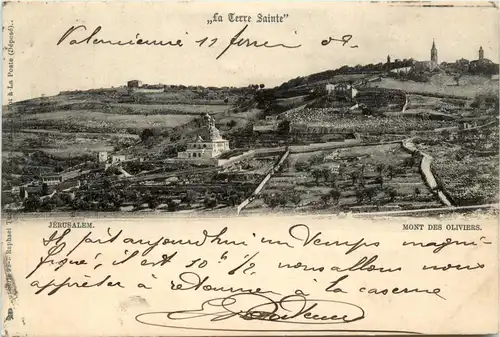 „La Terre Sainte"
Valencienne 11 février 02.
JÉRUSALEM. MONT DES OLIVIERS.
Il fait aujourd'hui un temps magni-
fique, il est 10h ½ nous allons nous
apprêter à retourner à la caserne